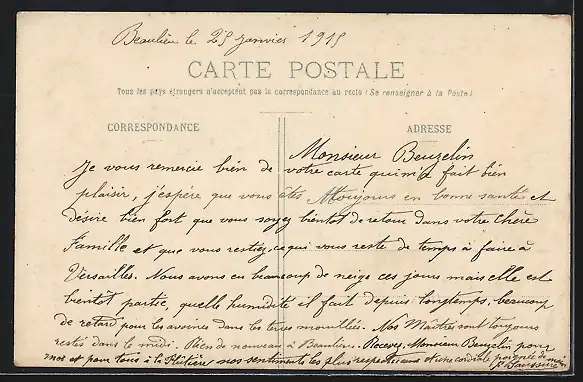 Beaulieu le 25 janvier 1915
CARTE POSTALE
Tous les pays étrangers n'acceptent pas la correspondance au recto (Se renseigner à la Poste)
CORRESPONDANCE
ADRESSE
Monsieur Beuzelin
Je vous remercie bien de votre carte qui m'a fait bien
plaisir, j'espère que vous êtes toujours en bonne santé et
désire bien fort que vous soyez bientôt de retour dans votre chère
Famille et que vous restiez, ce qui vous reste de temps à faire à
Versailles. Nous avons eu beaucoup de neige ces jours mais elle est
bientôt partie, quelle humidité il fait depuis longtemps, beaucoup
de retard pour les avoines dans les terres mouillées. Nos Maîtres sont toujours
restés dans le midi. Rien de nouveau à Beaulieu. Recevez, Monsieur Beuzelin pour
moi et pour tous à la nos sentiments les plus respectueux et une cordiale poignée de main